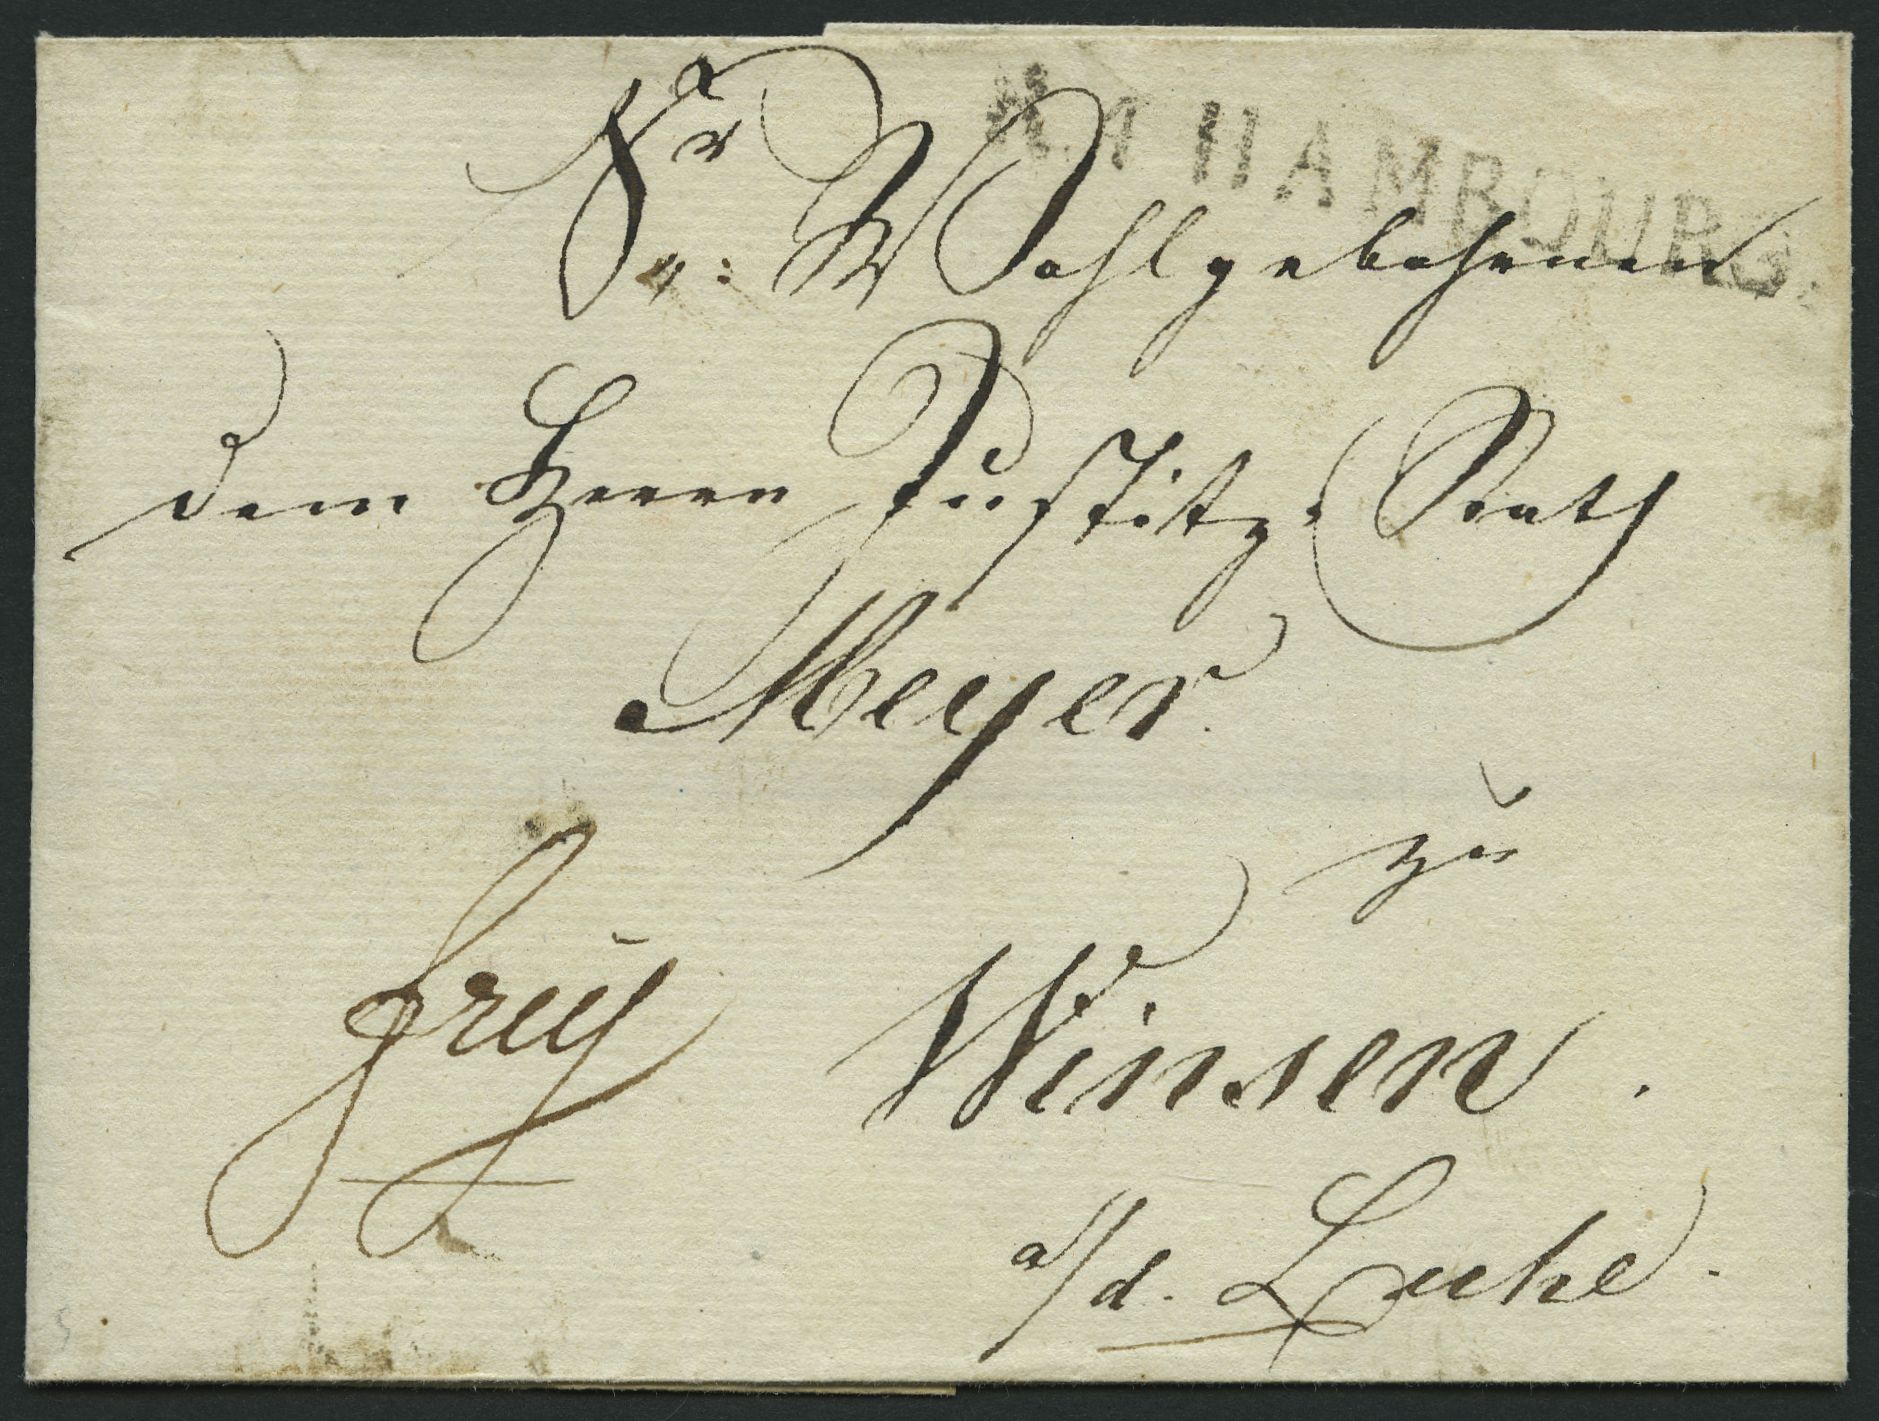 R.4 HAMBOURG.
Sr: Wohlgebohrnen
dem Herrn Justitz-Rath
Meyer.
zu
frey
Winsen.
a/d. Luhe.